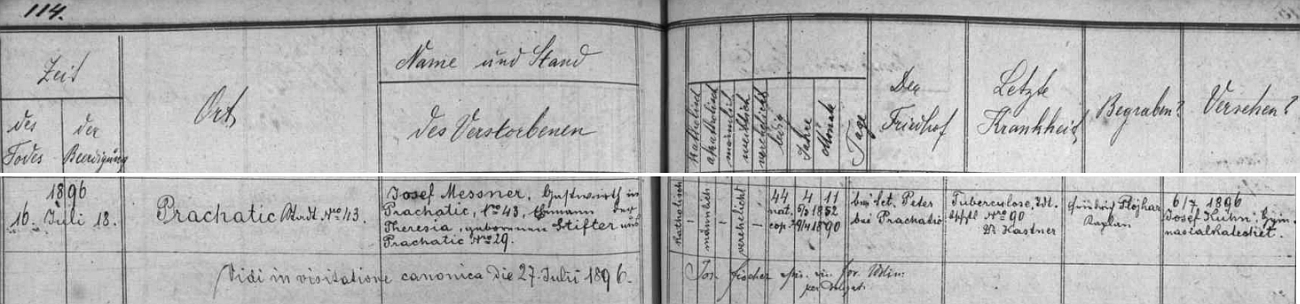 114.
Zeit
des Todes
der Beerdigung
Ort
Name und Stand
des Verstorbenen
katholisch
akatholisch
männlich
weiblich
verehelicht
ledig
Jahre
Monate
Tage
Der
Friedhof
Letzte
Krankheit
Begraben?
Versehen?
1896
16. Juli 18.
Prachatic Nro 43.
Josef Messner, Gastwirth in
Prachatic, Nro 43, Ehmann der
Theresia, gebornnen Stifter aus
Prachatic Nro 29.
katholisch
männlich
verehelicht
44 4 11
nat. 5/3 1852
cop. 1890
bei sct. Peter
bei Prachatic
Tuberculose, Tdt.
Nro 90
Dr Kastner
Flojhar
Kaplan
6/7 1896
Josef Kuhn, Gym-
nasialkatechet.
Vidi in visitatione canonica die 27. Julii 1896.
Jos. Fischer